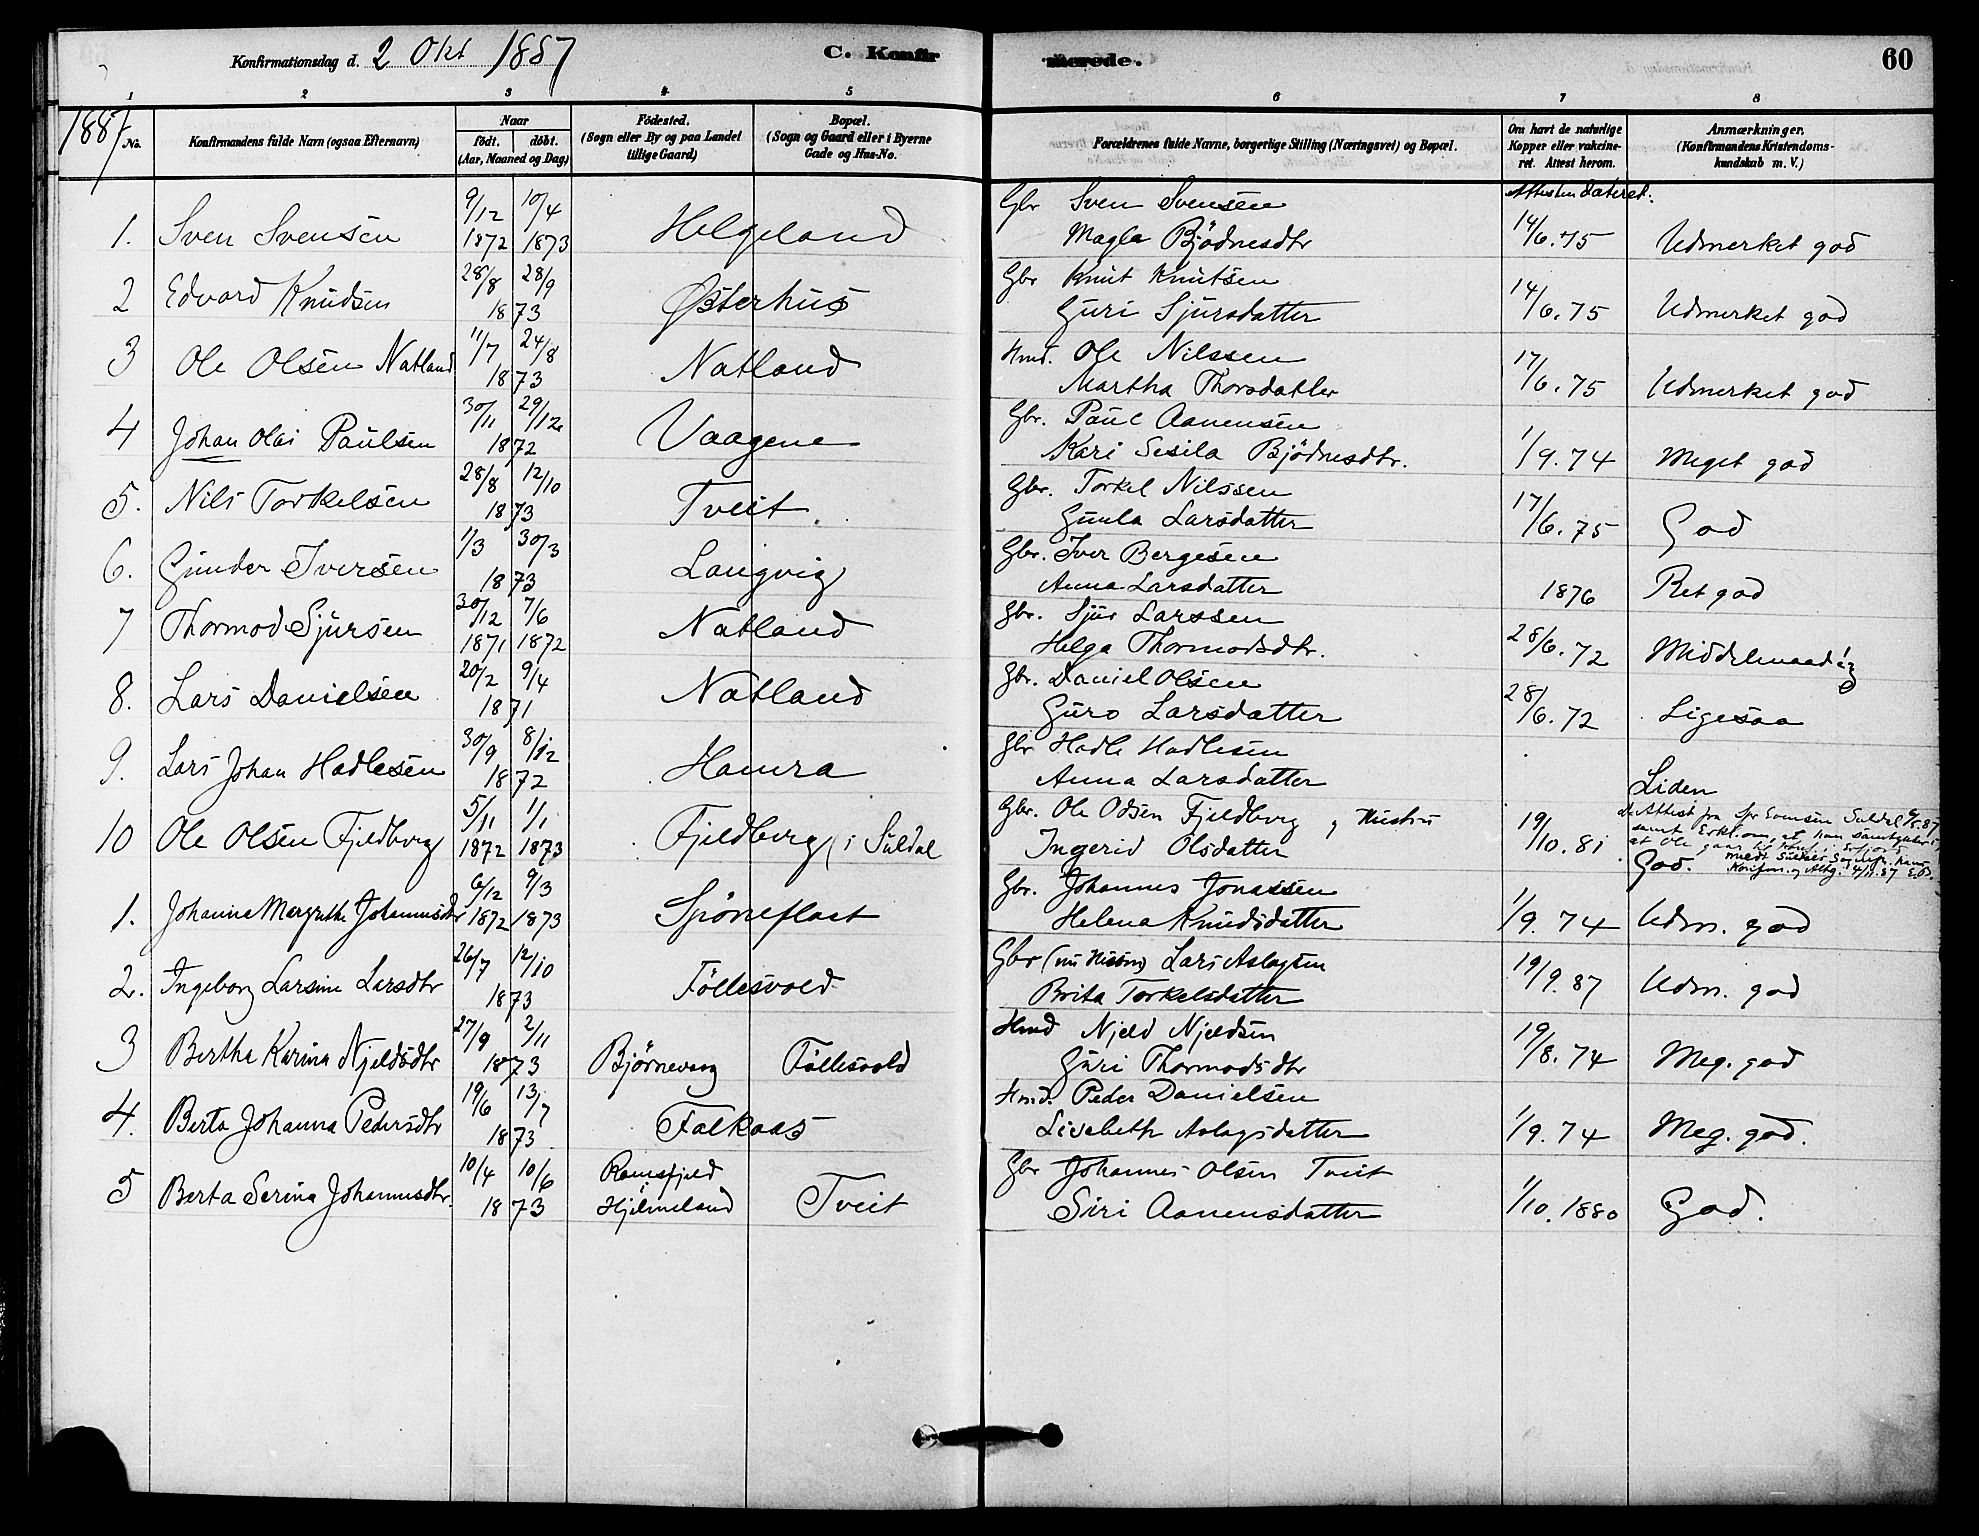 Konfirmationsdag d. 2 Okt 1887 C. Konfirmerede. 60
1 2 3 4 5 6 7 8
1887
No. Konfirmandens fulde Navn (ogsaa Efternavn) Naar født. døbt. (Aar, Maaned og Dag) Fødested. (Sogn eller By og paa Landet tillige Gaard) Bopæl. (Sogn og Gaard eller i Byerne Gade og Hus-No. Forældrenes fulde Navne, borgerlige Stilling (Næringsvei) og Bopæl. Om havt de naturlige Kopper eller vakcineret. Attest herom. Anmærkninger. (Konfirmandens Kristendomskundskab m. V.)
Attesten dateret.
1. Sven Svensen 9/12 1872 10/4 1873 Helgeland Gbr Sven Svensen
Magla Bjödnesdtr 14/6.75 Udmerket god
2 Edvard Knudsen 28/8 28/9 1873 Østerhus Gbr Knut Knutsen
Guri Sjursdatter 14/6.75 Udmerket god
3 Ole Olsen Natland 11/7 24/8 1873 Natland Hmd. Ole Nilssen
Martha Thorsdatter 17/6.75 Udmerket god
4 Johan Olai Paulsen 30/11 29/12 1872 Vaagene Gbr. Paul Aanensen
Kari Sesila Bjödnesdtr. 1/9.74 Meget god
5. Nils Torkelsen 28/8 12/10 1873 Tveit Gbr. Torkel Nilssen
Gunla Larsdatter 17/6.75 God
6. Gunder Iversen 1/3 30/3 1873 Langvig Gbr. Iver Bergesen
Anna Larsdatter 1876 Ret god
7 Thormod Sjursen 30/12 1871 7/6 1872 Natland Gbr. Sjur Larssen
Helga Thormodsdtr. 28/6.72 Middelmaadig
8. Lars Danielsen 20/2 9/4 1871 Natland Gbr. Daniel Olsen
Guro Larsdatter 28/6.72 Ligesaa
9. Lars Johan Hadlesen 30/9 8/12 1872 Hamra Gbr Hadle Hadlesen
Anna Larsdatter Liden
10 Ole Olsen Fjeldberg 5/11 1872 1/1 1873 Fjeldberg (i Suldal Gbr. Ole Odsen Fjeldberg, Hustru
Ingerid Olsdatter 19/10.81 Attest fra Spr Suldal
samt Erkl. om, at han samtykker i,
at Ole gaar til Konf. i
God. meldt Suldal
1. Johanna Margrethe Johannesdtr 6/12 1872 9/3 1873 Spøneflaat Gbr. Johannes Jonassen
Helena Knudsdatter 1/9.74 Udm. god
2. Ingeborg Larsine Larsdtr 26/7 12/10 1873 Föllesvold Gbr Lars Aslagsen
Brita Torkelsdatter 19/9.87 Udm. god
3 Bertha Karina Njeldsdtr 27/9 2/11 1873 Bjørnevaag Föllesvold Hmd Njeld Njeldsen
Guri Thormodsdtr 19/8.74 Meg. god
4. Berta Johanna Pedersdtr 19/6 13/7 1873 Falkaas Hmd. Peder Danielsen
Lisebeth Aslagsdatter 1/9.74 Meg. god.
5 Berta Serina Johannesdtr. 10/4 10/6 1873 Ramsfjeld
Hjelmeland Tveit Gbr Johannes Olsen Tveit
Siri Aanensdatter 1/10.1880 God.